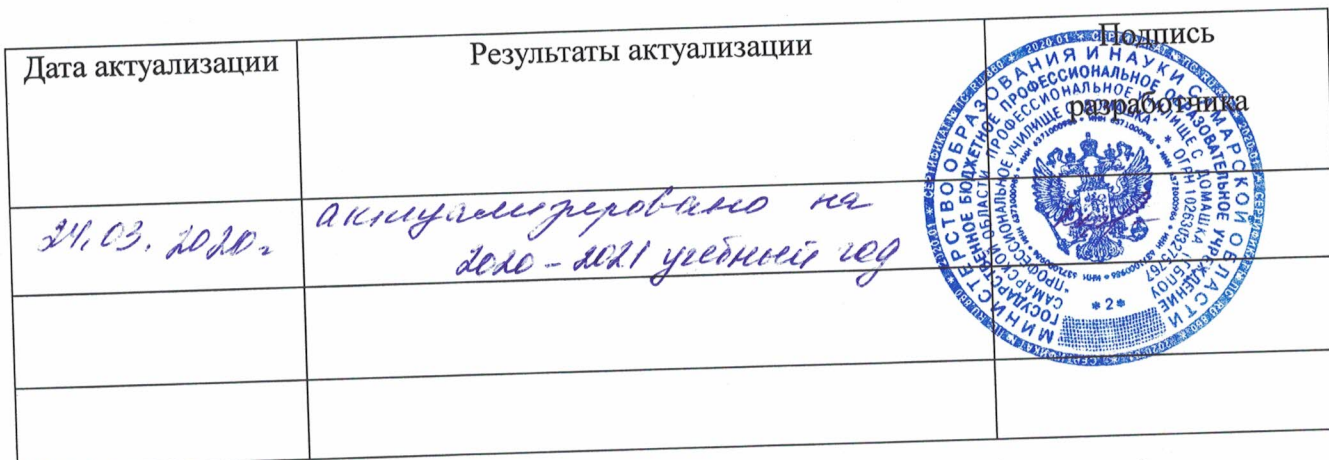 Дата актуализации
Результаты актуализации
Подпись
разработчика
24.03.2020г
актуализировано на
2020-2021 учебный год
МИНИСТЕРСТВО ОБРАЗОВАНИЯ И НАУКИ САМАРСКОЙ ОБЛАСТИ
ГОСУДАРСТВЕННОЕ БЮДЖЕТНОЕ ПРОФЕССИОНАЛЬНОЕ ОБРАЗОВАТЕЛЬНОЕ УЧРЕЖДЕНИЕ
САМАРСКОЙ ОБЛАСТИ "ПРОФЕССИОНАЛЬНОЕ УЧИЛИЩЕ С. ДОМАШКА
* 2 *